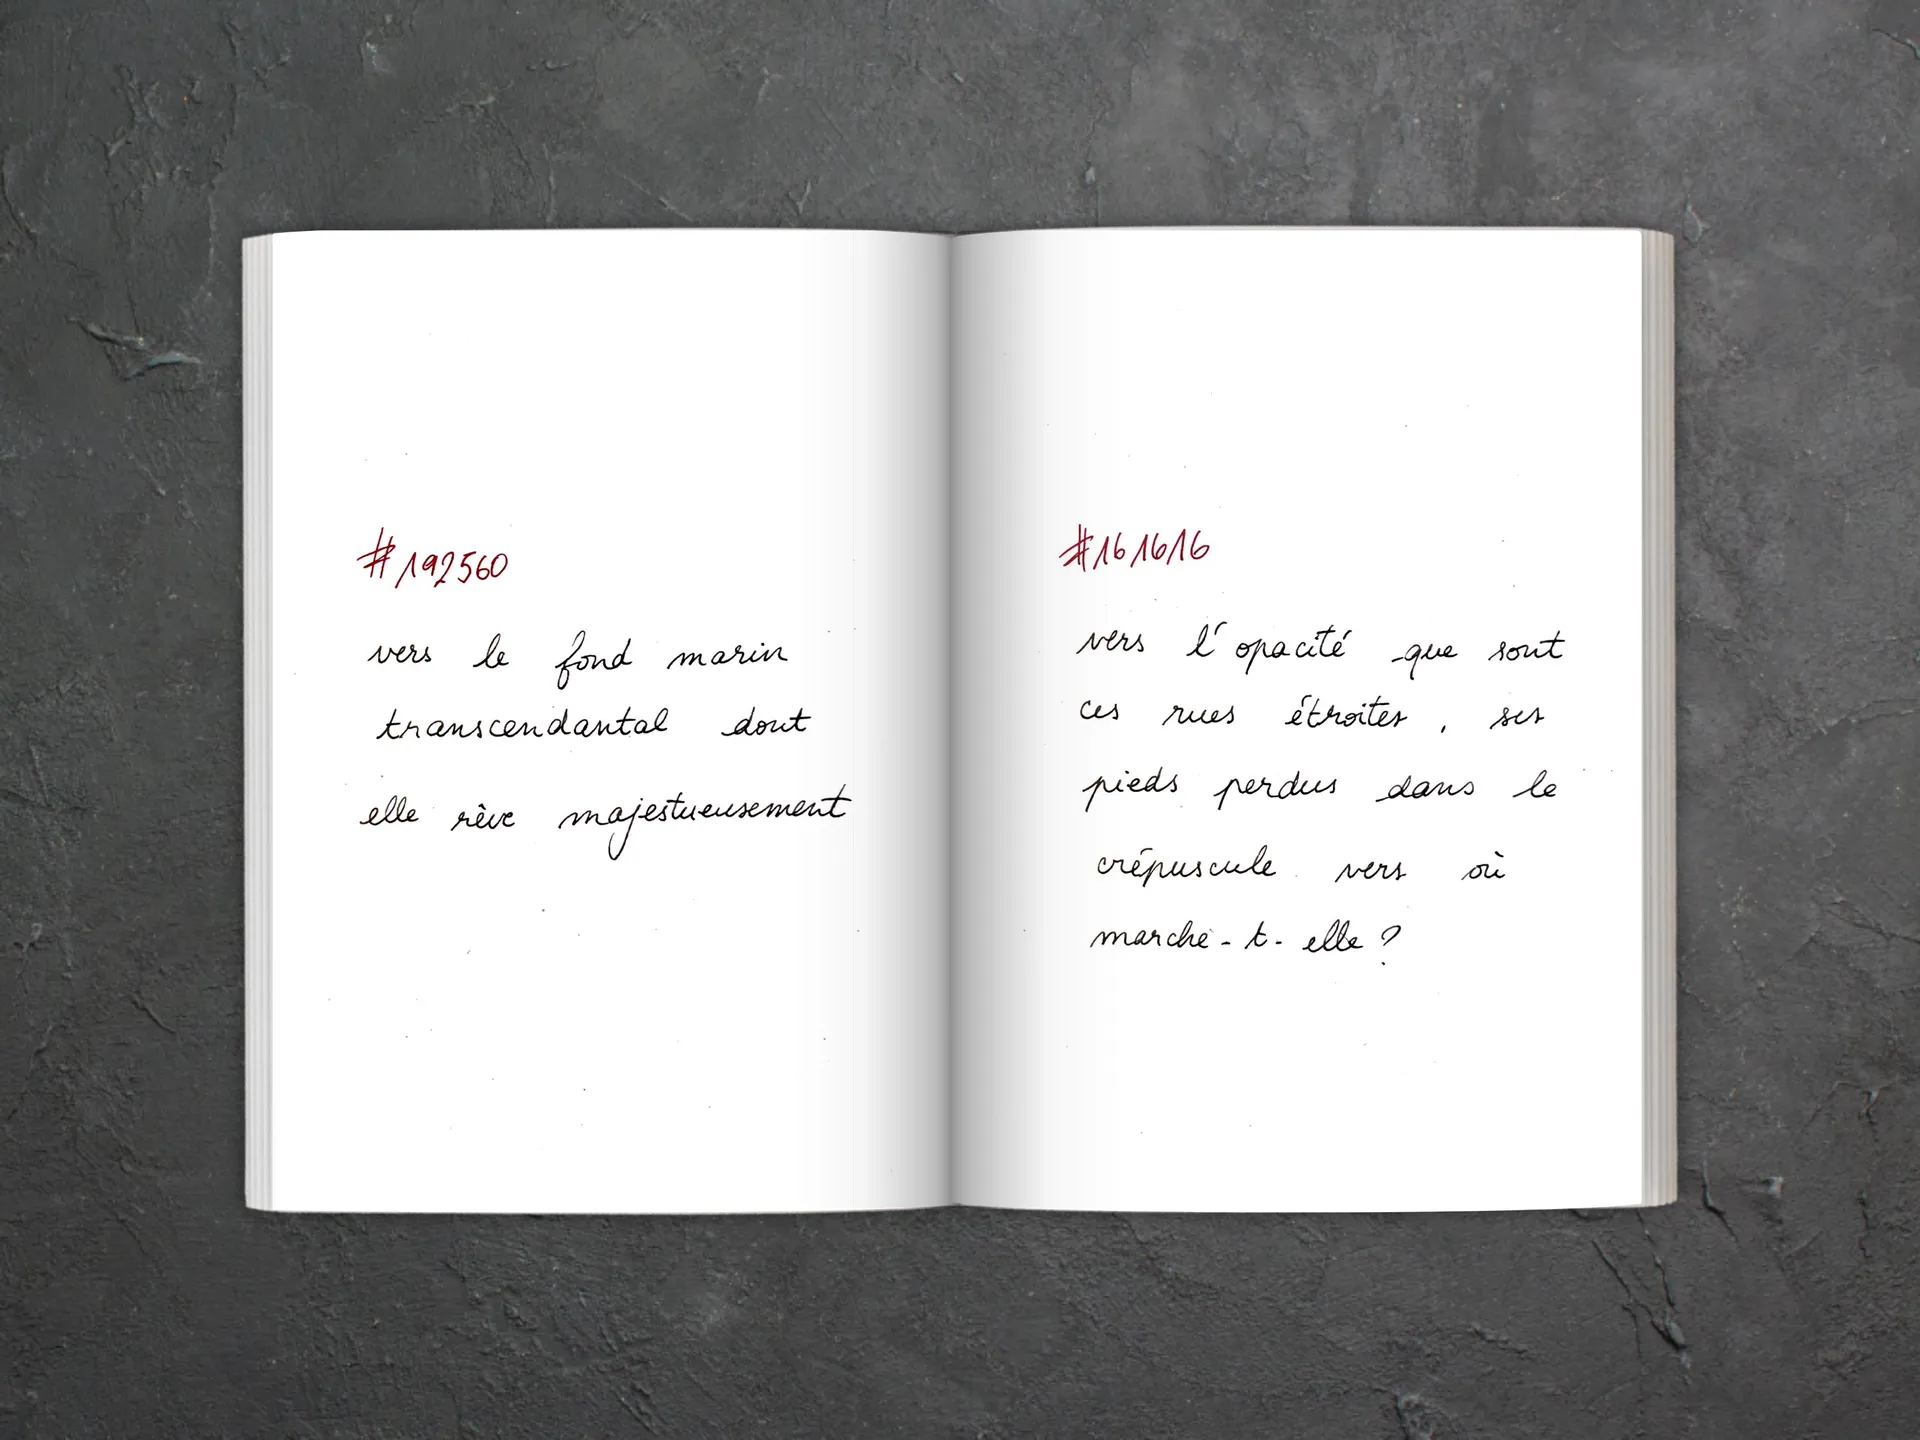 #192560
vers le fond marin
transcendantal dont
elle rêve majestueusement
#161616
vers l'opacité que sont
ces rues étroites, ses
pieds perdus dans le
crépuscule vers où
marche-t-elle ?